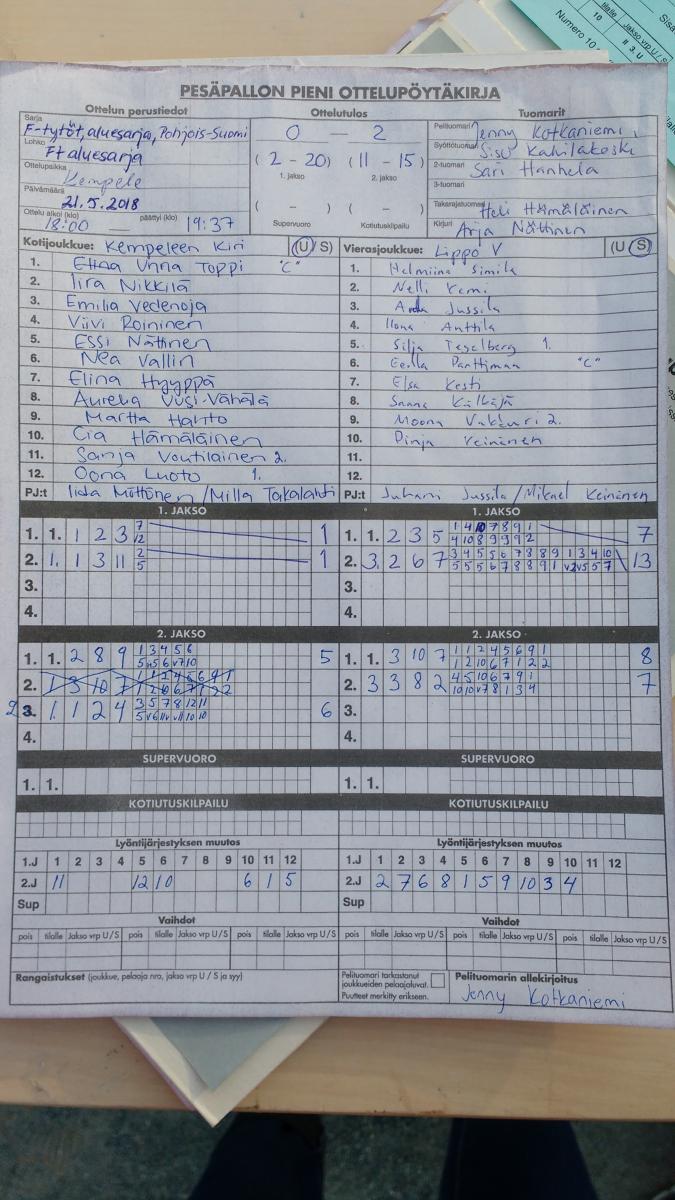 PESÄPALLON PIENI OTTELUPÖYTÄKIRJA
Ottelun perustiedot
Sarja
F-tytöt, aluesarja, Pohjois-Suomi
Lohko
Ft aluesarja
Ottelupaikka
Kempele
Päivämäärä
21.5.2018
Ottelu alkoi (klo) 18:00 päättyi (klo) 19:37
Ottelutulos
0 — 2
( 2 - 20 ) ( 11 - 15 )
1. jakso 2. jakso
( - ) ( - )
Supervuoro Kotiutuskilpailu
Tuomarit
Pelituomari Jenny Kotkaniemi
Syöttötuomari Sisu Kahilakoski
2-tuomari Sari Hanhela
3-tuomari
Takarajatuomari Heli Hämäläinen
Kirjuri Arja Nättinen
Kotijoukkue: Kempeleen Kiri (U/S)
1. Unna Toppi "C"
2. Iira Nikkilä
3. Emilia Vedenoja
4. Viivi Roininen
5. Essi Nättinen
6. Nea Vallin
7. Elina Hyyppä
8. Aurelia Uusi-Vähälä
9. Martta Harito
10. Cia Hämäläinen
11. Sanja Voutilainen 2.
12. Oona Luoto 1.
PJ:t Iida Möttönen / Milla Takalahti
Vierasjoukkue: Lippo V (U/S)
1. Helmiina Simila
2. Nelli Kemi
3. Jussila
4. Ilona Anttila
5. Silja Tegelberg 1.
6. Eerika Parttimaa "C"
7. Elsa Kesti
8. Sanna Kälkäjä
9. Moona 2.
10. Pinja Keinänen
11.
12.
PJ:t Juhani Jussila / Mikael Keinänen
1. JAKSO
1. 1. 1 2 3 7 12 1
2. 1. 1 3 11 2 5 1
3.
4.
1. JAKSO
1. 1. 2 3 5 1 4 10 7 8 9 1 7
4 10 8 9 9 9 2
2. 3. 2 6 7 3 4 5 5 6 7 8 8 9 1 3 4 10 13
5 5 5 6 7 8 8 9 1 v2 v5 5 7
3.
4.
2. JAKSO
1. 1. 2 8 9 1 3 4 5 6 5
2. 1 3 10 7 1 1 2 4 5 6 9 1
1 2 10 6 7 1 2 2
2 3. 1. 1 2 4 3 5 7 8 12 11 6
4.
2. JAKSO
1. 1. 3 10 7 1 1 2 4 5 6 9 1 8
1 2 10 6 7 1 2 2
2. 3 3 8 2 4 5 10 6 7 9 1 7
10 10 v7 8 1 3 4
3.
4.
SUPERVUORO
1. 1.
SUPERVUORO
1. 1.
KOTIUTUSKILPAILU
KOTIUTUSKILPAILU
Lyöntijärjestyksen muutos
1.J 1 2 3 4 5 6 7 8 9 10 11 12
2.J 11 12 10 6 1 5
Sup
Lyöntijärjestyksen muutos
1.J 1 2 3 4 5 6 7 8 9 10 11 12
2.J 2 7 6 8 1 5 9 10 3 4
Sup
Vaihdot
pois tilalle Jakso vrp U/S pois tilalle Jakso vrp U/S pois tilalle Jakso vrp U/S
Vaihdot
pois tilalle Jakso vrp U/S pois tilalle Jakso vrp U/S pois tilalle Jakso vrp U/S
Rangaistukset (joukkue, pelaaja nro, jakso vrp U / S ja syy)
Pelituomari tarkastanut
joukkueiden pelaajaluvat.
Puutteet merkitty erikseen.
Pelituomarin allekirjoitus
Jenny Kotkaniemi
tilalle Jakso vrp U / S
10 II 3. U
Numero 10